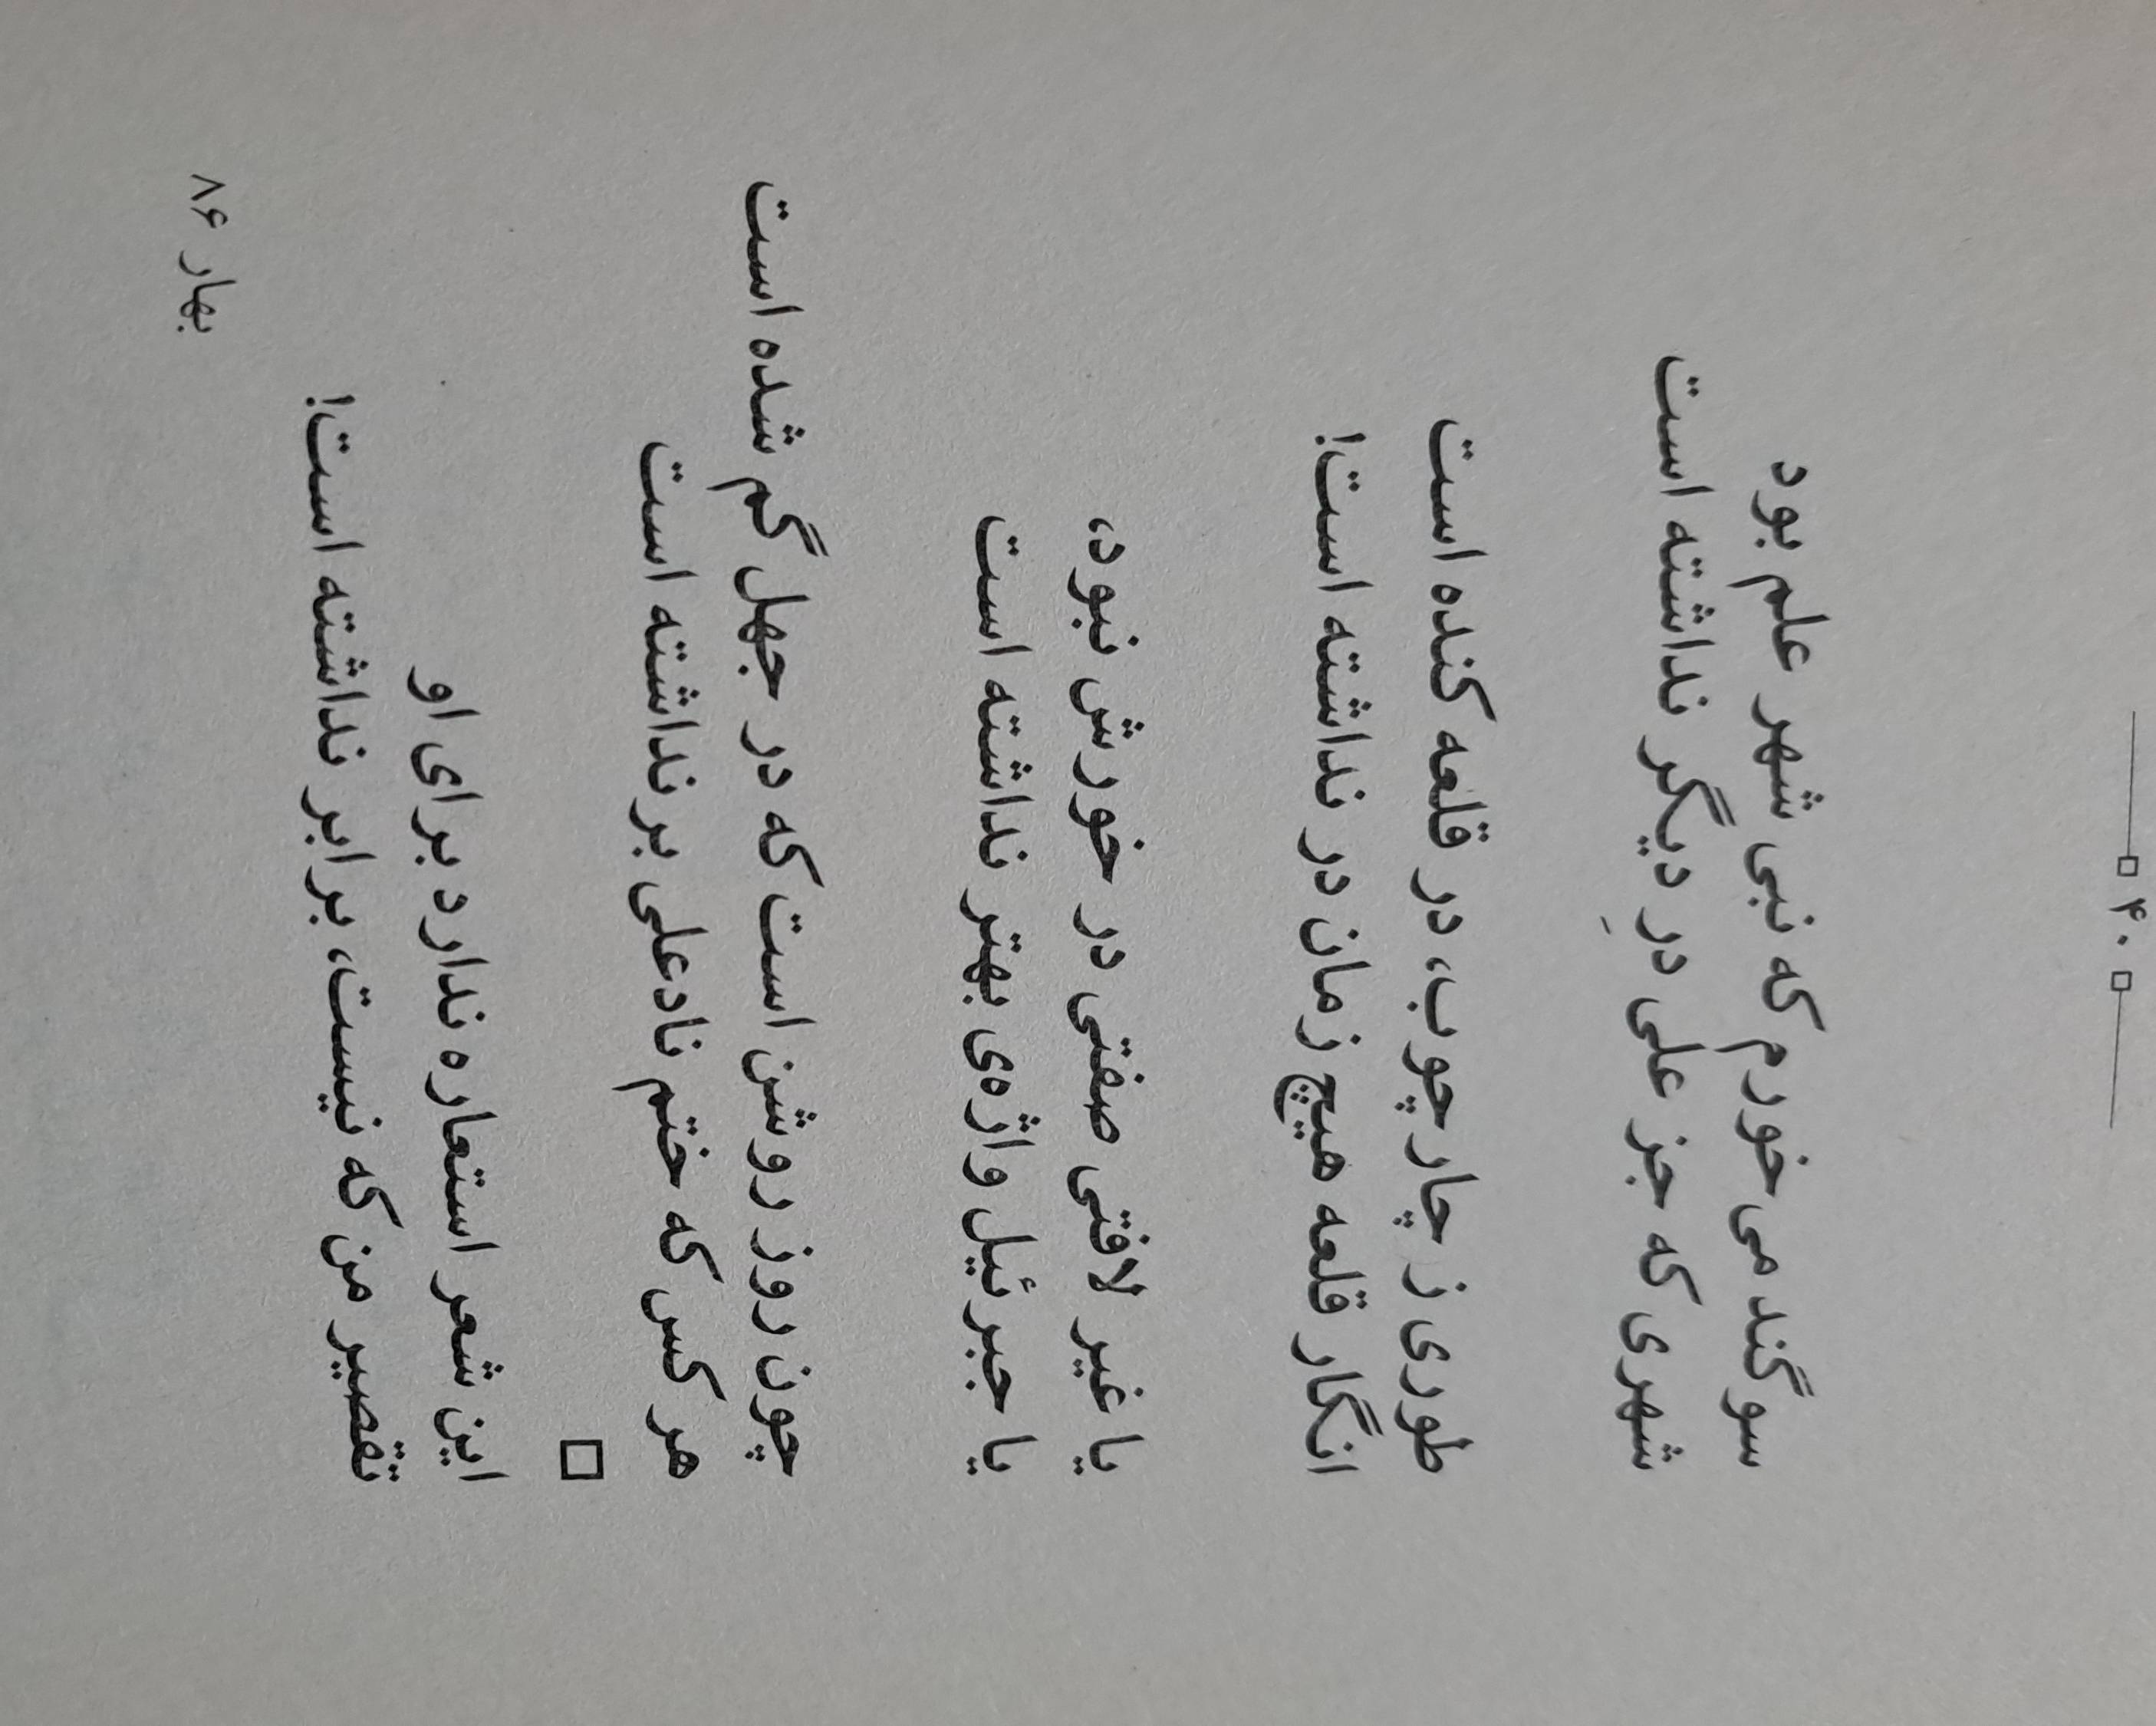 ۴۰
سوگند می خورم که نبی شهر علم بود
شهری که جز علی درِ دیگر نداشته است
طوری ز چارچوب، در قلعه کنده است
انگار قلعه هیچ زمان در نداشته است!
یا غیر لافتی صفتی در خورش نبود،
یا جبرئیل واژه‌ی بهتر نداشته است
چون روز روشن است که در جهل گم شده است
هر کس که ختم نادعلی بر نداشته است
این شعر استعاره ندارد برای او
تقصیر من که نیست، برابر نداشته است!
بهار ۸۶